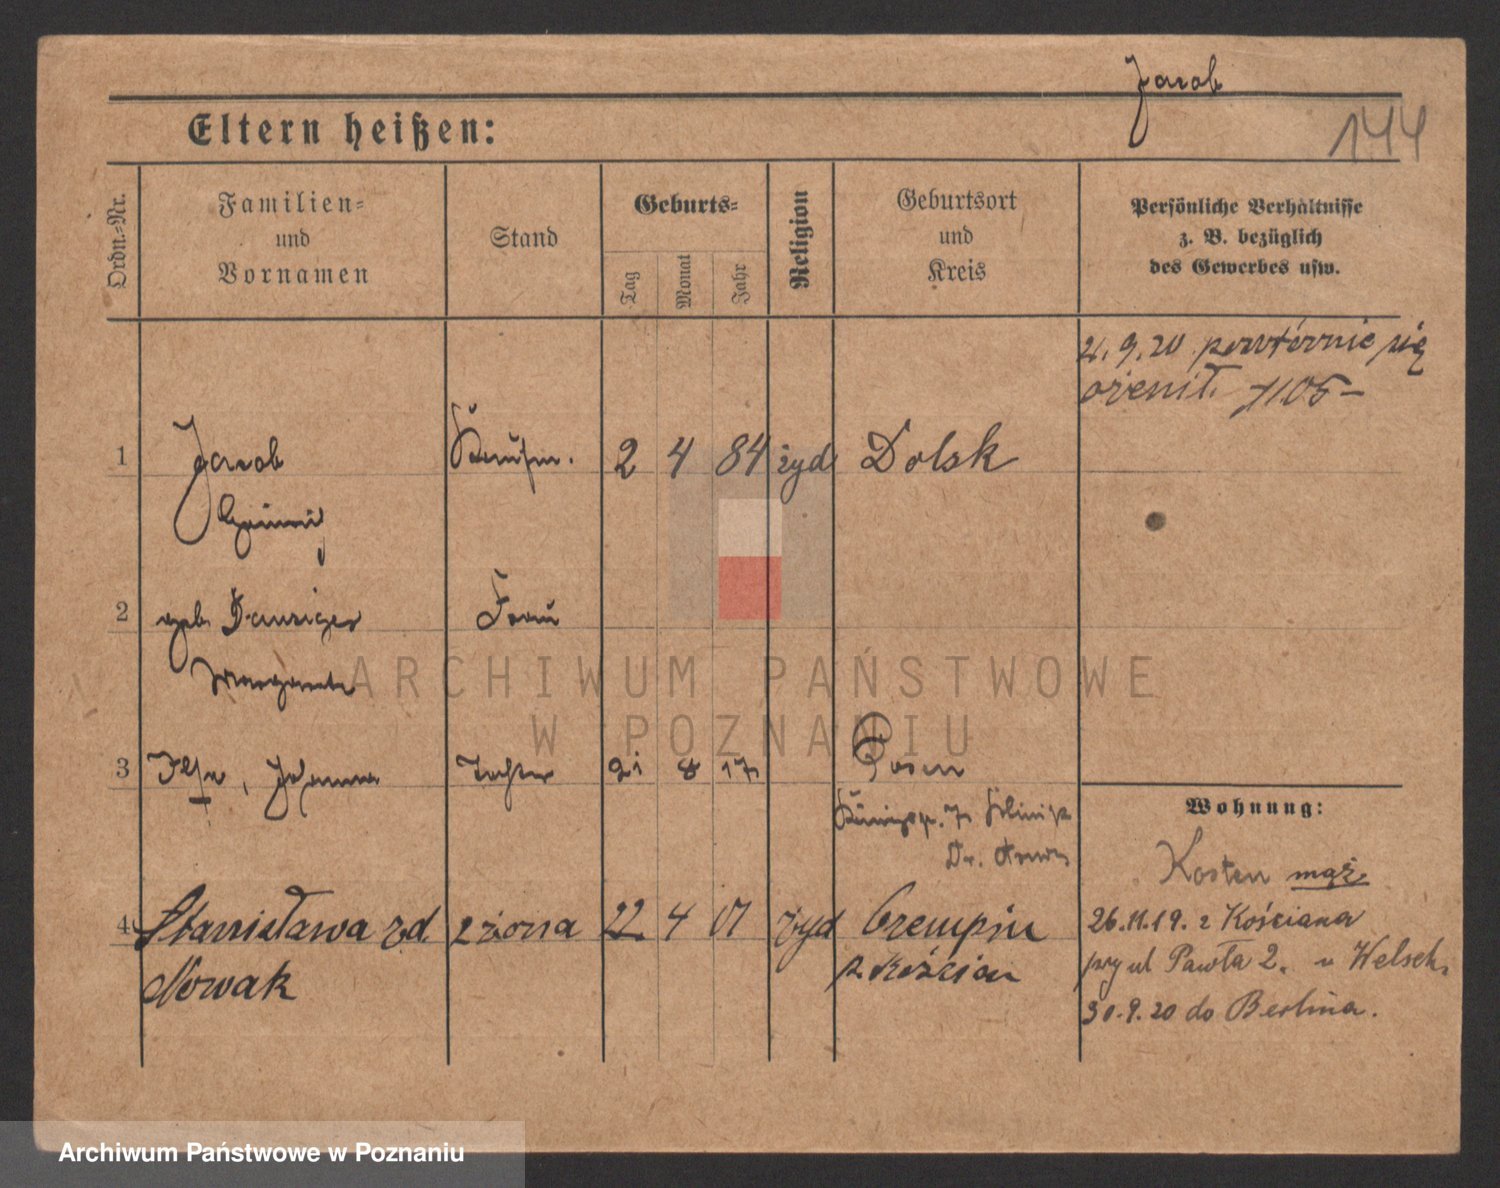 Jacob
144
Eltern heißen:
Ordn.-Nr.
Familien-
und
Vornamen
Stand
Geburts-
Tag
Monat
Jahr
Religion
Geburtsort
und
Kreis
Persönliche Verhältnisse
z. B. bezüglich
des Gewerbes usw.
21.9.20 powtórnie się
ożenił. 1105-
1 Jacob Kaufm. 2 4 84 żyd Dolsk
2 geb. Danziger Frau
Margarete
3 Ilse, Johanna Tochter 21 8 17 Posen
Dr.
Wohnung:
Kosten mąż
26.11.19. z Kościana
przy ul Pawła 2. u Welsch.
30.9.20 do Berlina.
4 Stanisława zd 2 żona 22 4 01 żyd Czempin
Nowak p. Kościan
ARCHIWUM PAŃSTWOWE
W POZNANIU
Archiwum Państwowe w Poznaniu